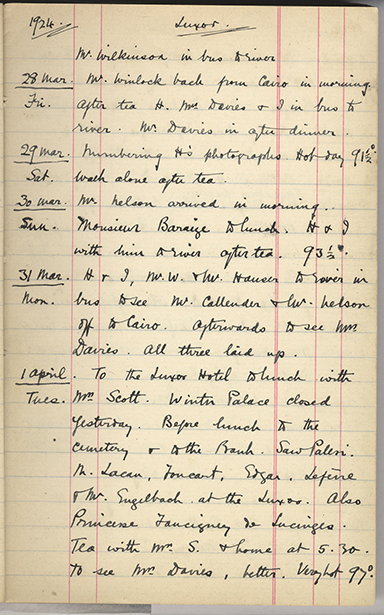 1924. Luxor.
Mr. Wilkinson in bus to river
28 Mar. Mr. Winlock back from Cairo in morning.
Fri. After tea H. Mrs Davies & I in bus to
river. Mr. Davies in after dinner.
29 Mar. Numbering H's photographs Hot day 91½°.
Sat. Walk alone after tea.
30 Mar. Mr. Nelson arrived in morning.
Sun. Monsieur Baraize to lunch. H & I
with him to river after tea. 93½°.
31 Mar. H & I, Mr. W. & Mr. Hauser to river in
Mon. bus to see Mr. Callender & Mr. Nelson
off to Cairo. Afterwards to see Mrs
Davies. All three laid up.
1 April. To the Luxor Hotel to lunch with
Tues. Mrs Scott. Winter Palace closed
yesterday. Before lunch to the
cemetery & to the Bank. Saw Paleri.
M. Lacau, Foucart, Edgar, Lefèvre
& Mr. Engelbach at the Luxor. Also
Princesse Faucigney de Lucinges.
Tea with Mrs. S. & home at 5.30.
To see Mrs Davies, better. Very hot 97°.